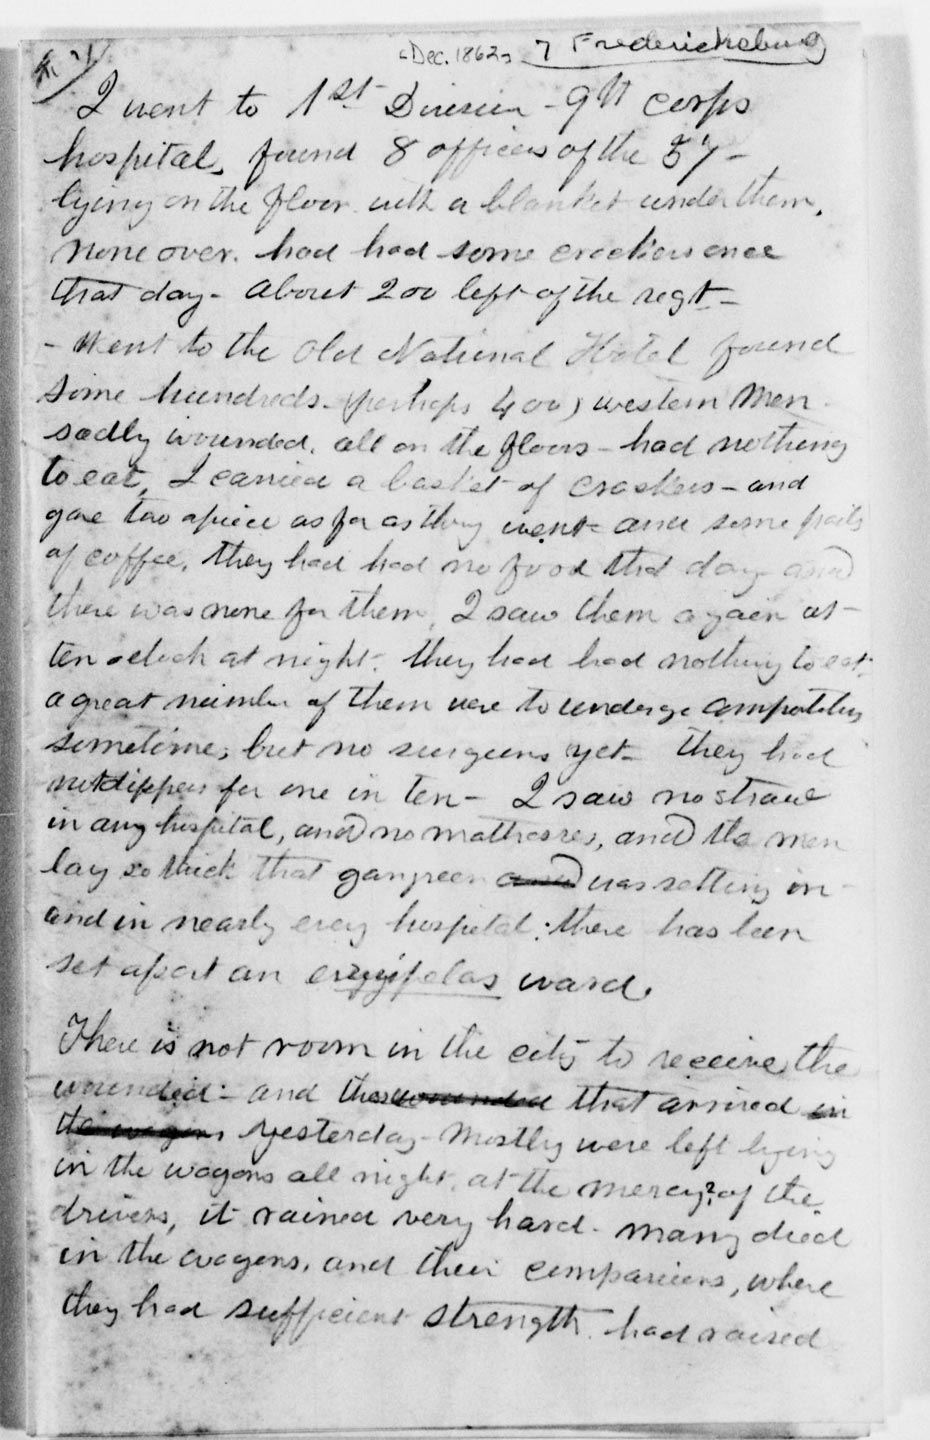 [Dec. 1862] 7 Fredericksburg
I went to 1st Division - 9th corps
hospital, found 8 officers of the 57 -
lying on the floor with a blanket under them,
none over. had had some crackers once
that day - About 200 left of the regt -
- Went to the Old National Hotel found
some hundreds - (perhaps 400) western men -
sadly wounded, all on the floors - had nothing
to eat, I carried a basket of crackers - and
gave two apiece as far as they went - and some pails
of coffee, they had had no food that day and
there was none for them, I saw them again at
ten oclock at night. they had had nothing to eat
a great number of them were to undergo amputation
sometime, but no surgeons yet - they had
not dippers for one in ten - I saw no straw
in any hospital, and no mattresses, and the men
lay so thick that gangreen and was setting in -
and in nearly every hospital: there has been
set apart an erysipelas ward.
There is not room in the city to receive the
wounded - and those wounded that arrived in
the wagons yesterday - mostly were left lying
in the wagons all night, at the mercy? of the
drivers, it rained very hard - many died
in the wagons, and their companions, where
they had sufficient strength had raised